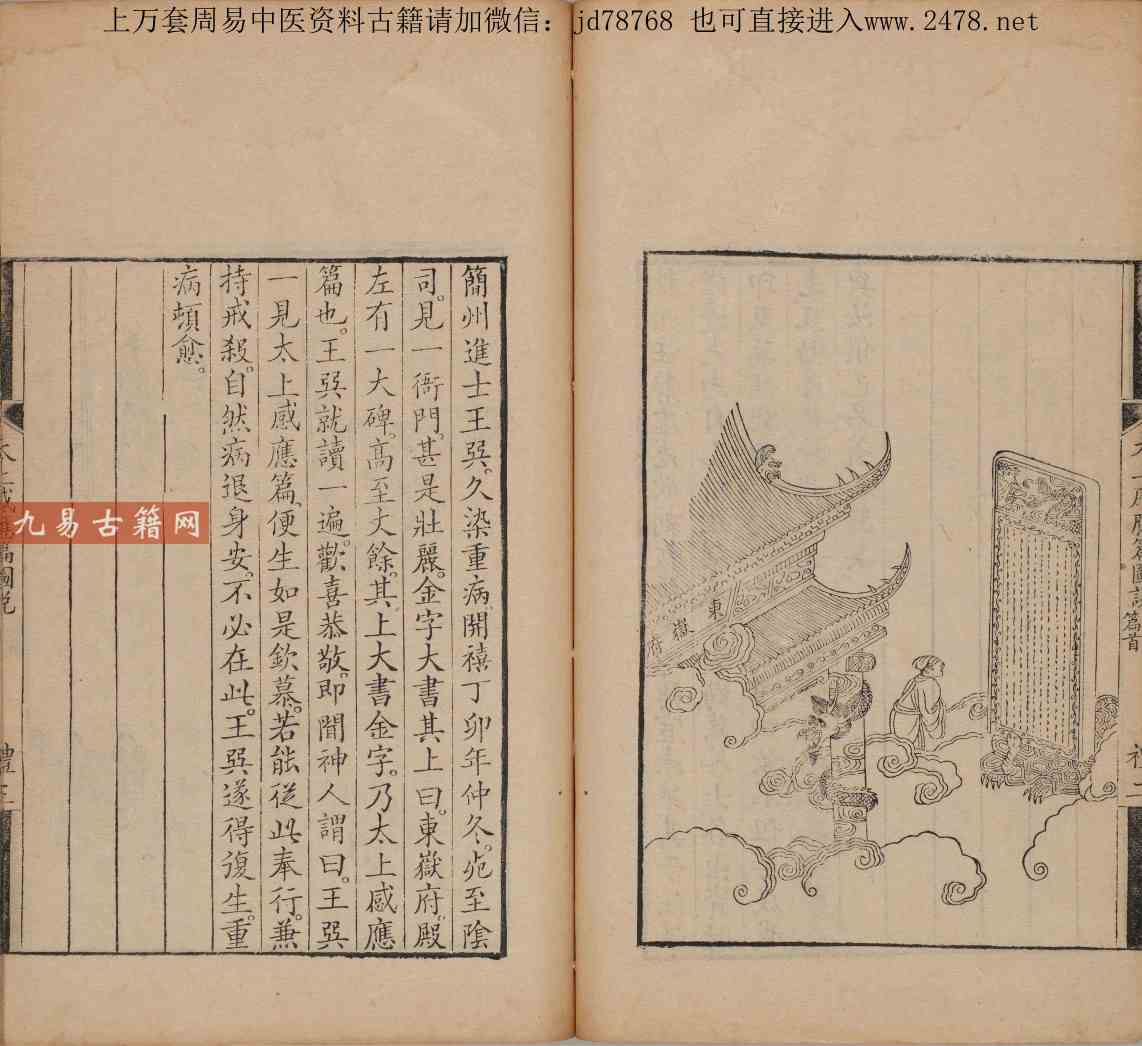 上万套周易中医资料古籍请加微信：jd78768 也可直接进入www.2478.net
東
嶽
府
禮二
簡州進士王巽。久染重病。開禧丁卯年仲冬。死至陰
司。見一衙門。甚是壯麗。金字大書其上曰。東嶽府。殿
左有一大碑。高至丈餘。其上大書金字。乃太上感應
篇也。王巽就讀一遍。歡喜恭敬。即聞神人謂曰。王巽
一見太上感應篇。便生如是欽慕。若能從此奉行。兼
持戒殺。自然病退身安。不必在此。王巽遂得復生。重
病頓愈。
禮三
九易古籍网